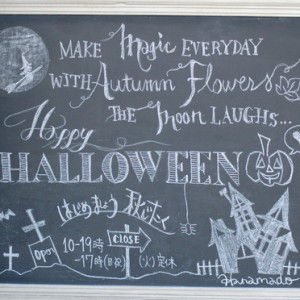 MAKE Magic EVERYDAY
WITH Autumn Flowers
THE Moon LAUGHS...
Happy
HALLOWEEN
はじめましょう 秋じたく
OPEN
10-19時
-17時(日祝)
CLOSE
(火)定休
Hanamado